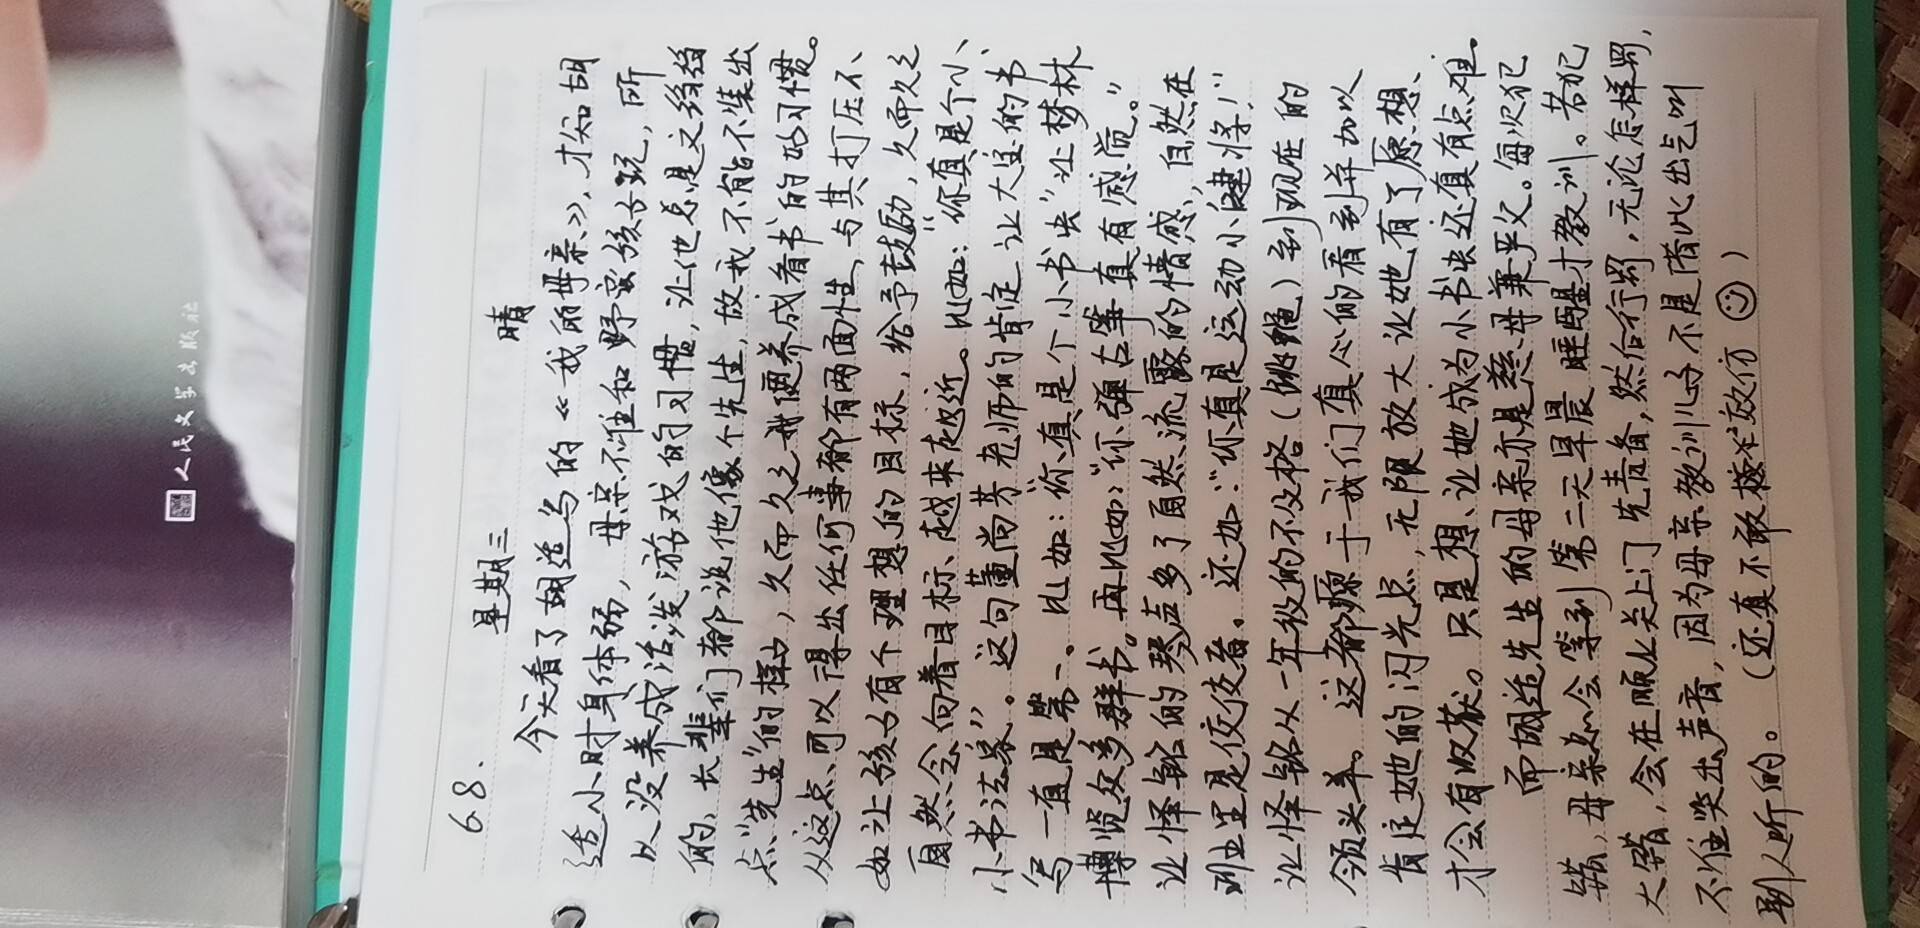 6.8.
星期三 晴
今天看了胡适写的《我的母亲》,才知胡
适小时身体弱,母亲不准和野蛮孩子玩,所
以没养成活泼游戏的习惯,让他总是文绉绉
的,长辈们都说他像个先生,故我不能不装出
点“先生”的样子,久而久之我便养成看书的好习惯。
从这点可以得出任何事都有两面性,与其打压不
如让孩子有个理想的目标,给予鼓励,久而久之
自然会向着目标越来越近。比如:“你真是个小
小书法家”。这句董尚芳老师的肯定让大宝的书
写一直是第一、比如:“你真是个小书虫”让梦林
博览众多群书。再比如:“你弹古筝真有感觉。”
让怿铭的琴声多了自然流露的情感,自然在
班里是佼佼者。还如:“你真是运动小健将!”
让怿铭从一年级的不及格(跳绳)到现在的
领头羊。这都源于我们真心的看到并加以
肯定她的闪光点,无限放大让她有了愿想、
才会有收获。只是想让她成为小书虫还真有点难.
而胡适先生的母亲亦是慈母兼严父。每次犯
错,母亲总会等到第二天早晨睡醒才教训。若犯
大错,会在晚上关上门先责备,然后行罚,无论怎样罚,
不准哭出声音,因为母亲教训儿子不是借此出气叫
别人听的。(还真不敢效仿☺)
人民文学出版社